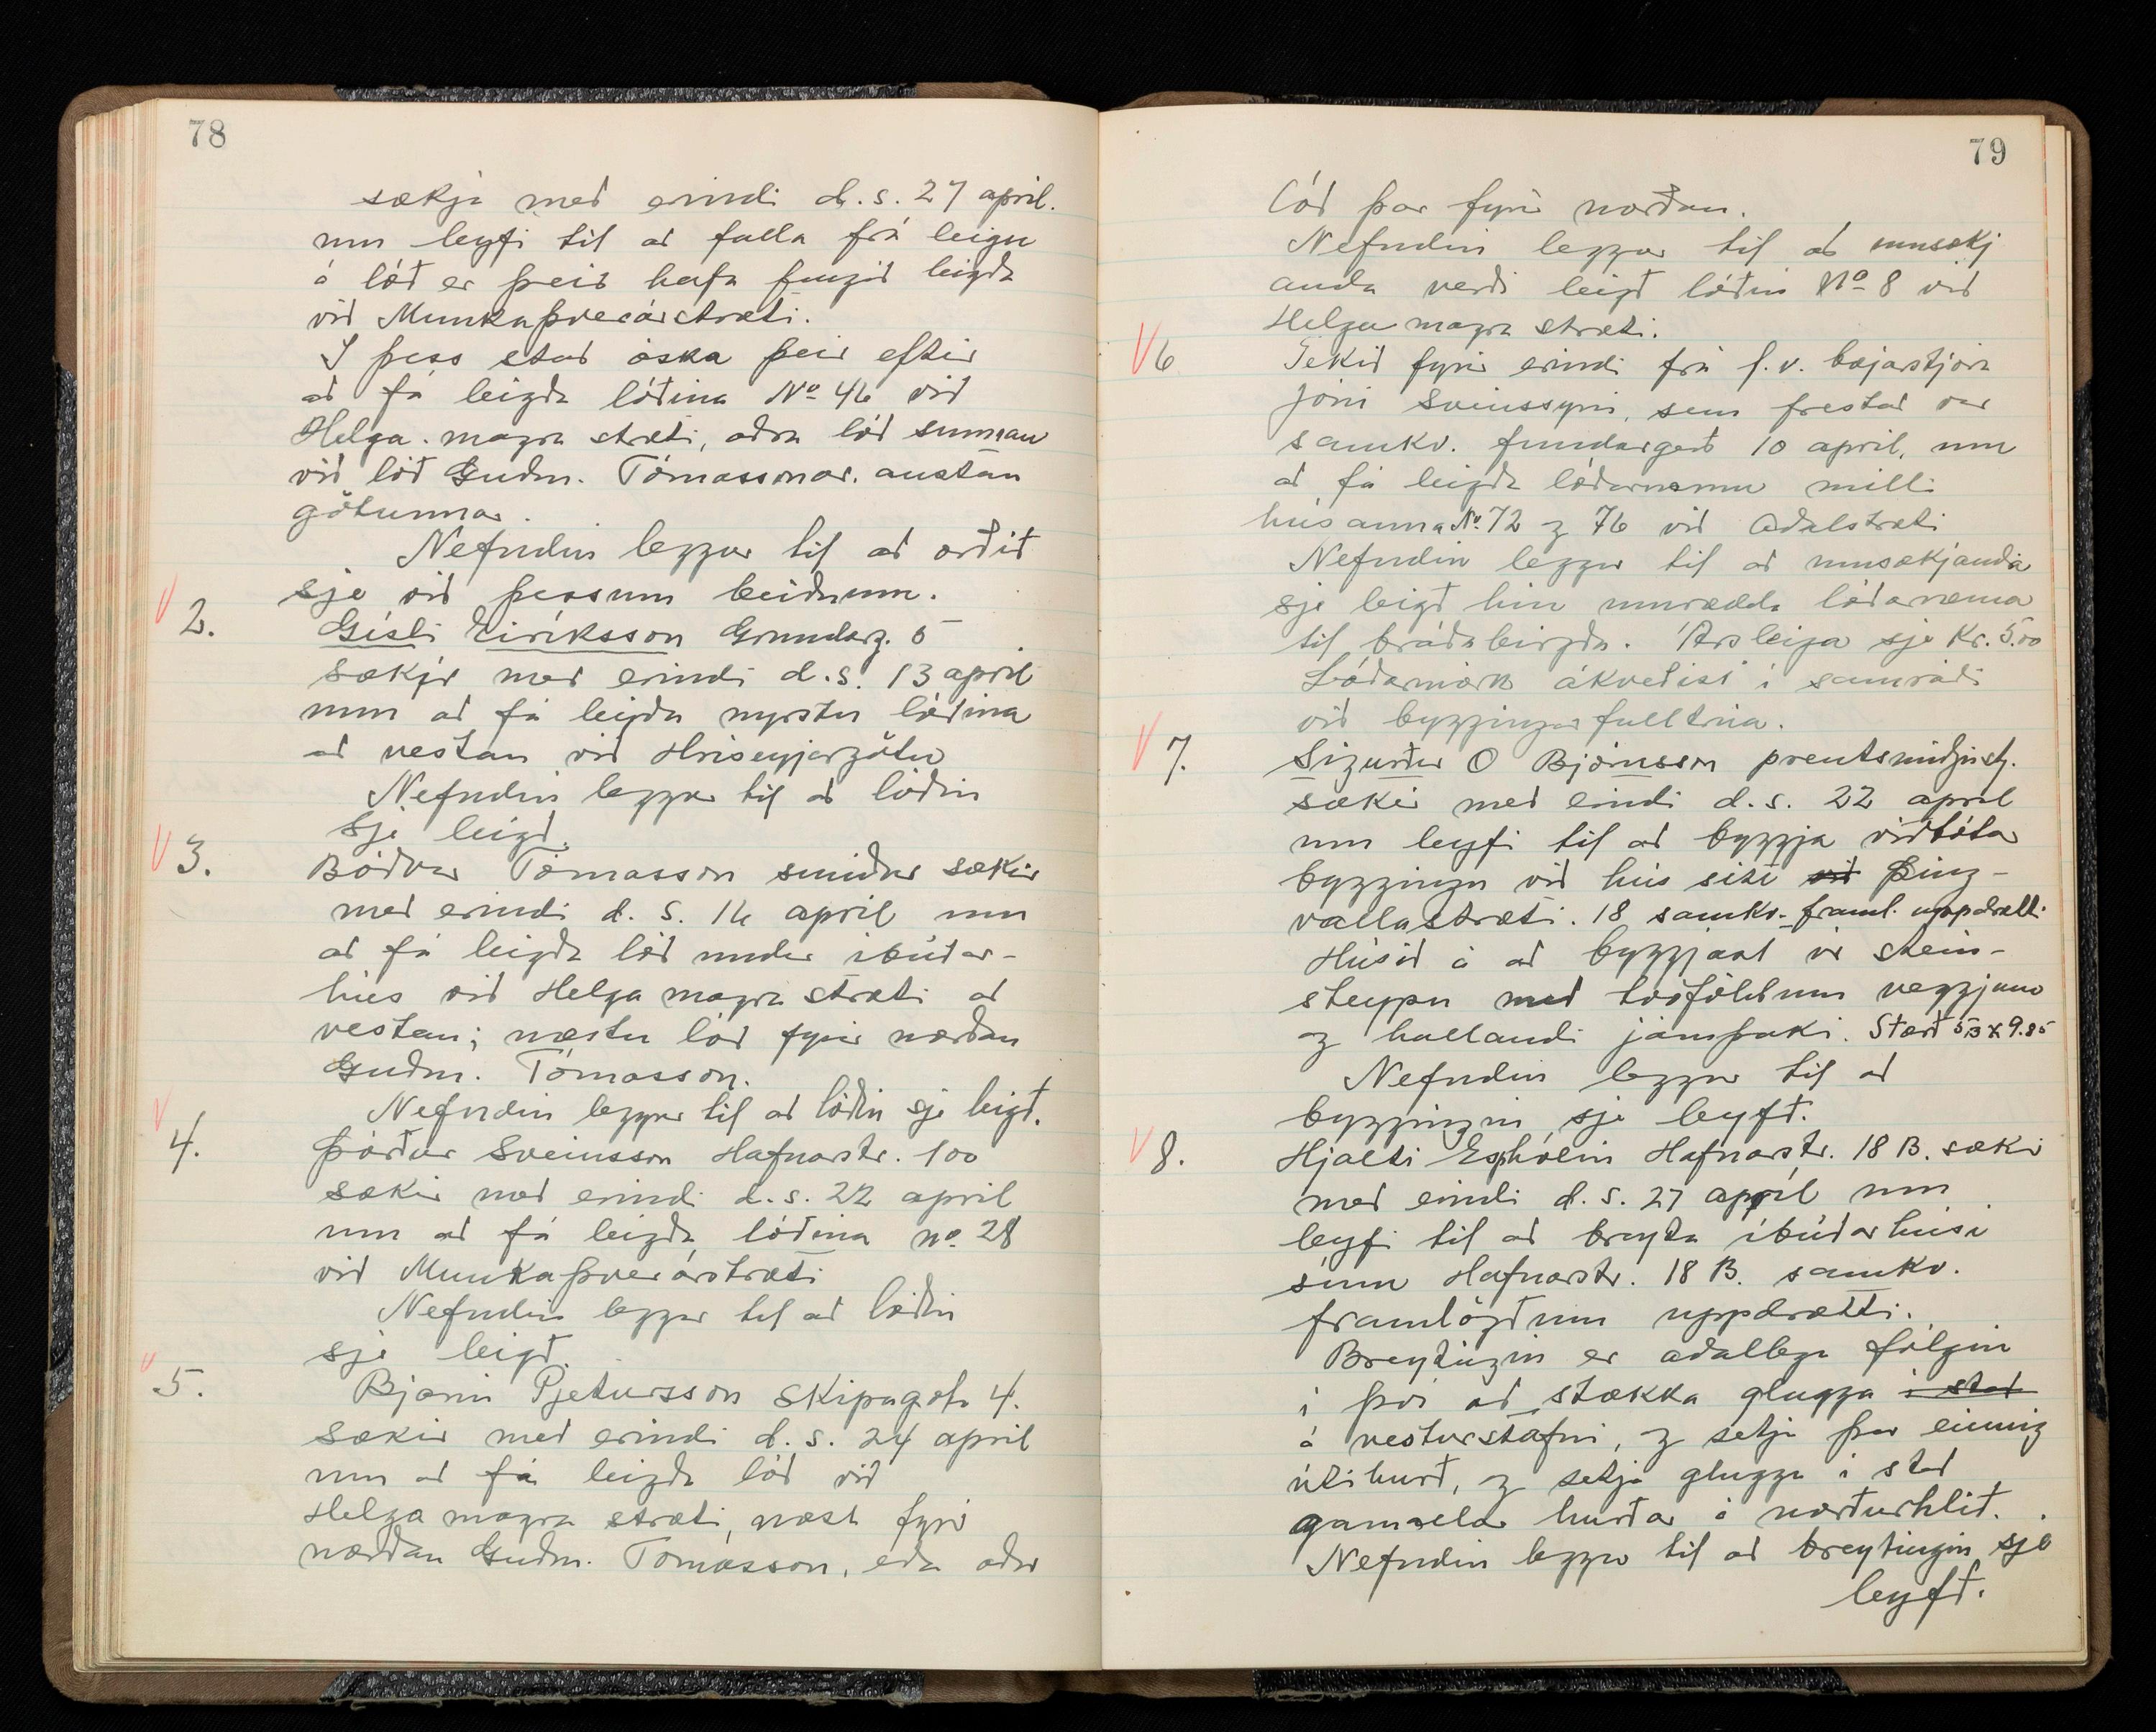 78
sækja með erindi d.s. 27 april.
um leyfi til að falla frá leigu
á lóð er þeir hafa fengið leigða
við Munkaþverárstræti.
I þess stað óska þeir eftir
að fá leigða lóðina No 46 við
Helga-magra stræti, aðra lóð sunnan
við lóð Guðm. Tómassonar. austan
götunnar.
Nefndin leggur til að orðið
sje við þessum beiðnum.
V 2. Gísli Eiríksson Grundarg. 5
sækir með erindi d.s. 13 apríl
um að fá leigða nyrstu lóðina
að vestan við Hríseyjargötu
Nefndin leggur til að lóðin
sje leigð.
V 3. Böðvar Tómasson smiður sækir
með erindi d.s. 16 april um
að fá leigða lóð undir íbúðar-
hús við Helga magra stræti að
vestan; næstu lóð fyrir norðan
Guðm. Tómasson.
Nefndin leggur til að lóðin sje leigð.
V 4. Þórður Sveinsson Hafnarstr. 100
sækir með erindi d.s. 22 april
um að fá leigða lóðina no. 28
við Munkaþverárstræti
Nefndin leggur til að lóðin
sje leigð.
V 5. Bjarni Pjetursson Skipagata 4.
sækir með erindi d.s. 24 april
um að fá leigða lóð við
Helga magra stræti, næst fyrir
norðan Guðm. Tómasson, eða aðra
79
lóð þar fyrir norðan.
Nefndin leggur til að umsækj
anda verði leigð lóðin No 8 við
Helga magra stræti.
V 6 Tekið fyrir erindi frá f.v. bæjarstjóra
Jóni Sveinssyni, sem frestað var
samkv. fundargerð 10 april, um
að fá leigða lóðarræmu milli
húsanna No. 72 og 76 við Aðalstræti
Nefndin leggur til að umsækjanda
sje leigð hin umrædda lóðarræma
til bráðabirgða. Ársleiga sje Kr. 5.00
Lóðamörk ákveðist í samráði
við byggingarfulltrúa.
V 7. Sigurður O Björnsson prentsmiðjustj.
sækir með eindi d.s. 22 april
um leyfi til að byggja viðbótar
byggingu við hús sitt við Þing-
vallastræti. 18 samkv. framl. uppdrætti.
Húsið á að byggjast úr stein-
steypu með tvöföldum veggjum
og hallandi járnþaki. Stærð 5.3 x 9.85
Nefndin leggur til að
byggingin sje leyfð.
V 8. Hjalti Espholin Hafnarstr. 18 B. sækir
með eindi d.s. 27 apríl um
leyfi til að breyta íbúðarhúsi
sínu Hafnarstr. 18 B. samkv.
framlögðum uppdrætti.
Breytingin er aðallega fólgin
í því að stækka glugga í stað
á vesturstafni, og setja þar einnig
útihurð, og setja glugga í stað
gamallar hurðar á norðurhlið.
Nefndin leggur til að breytingin sje
leyfð.